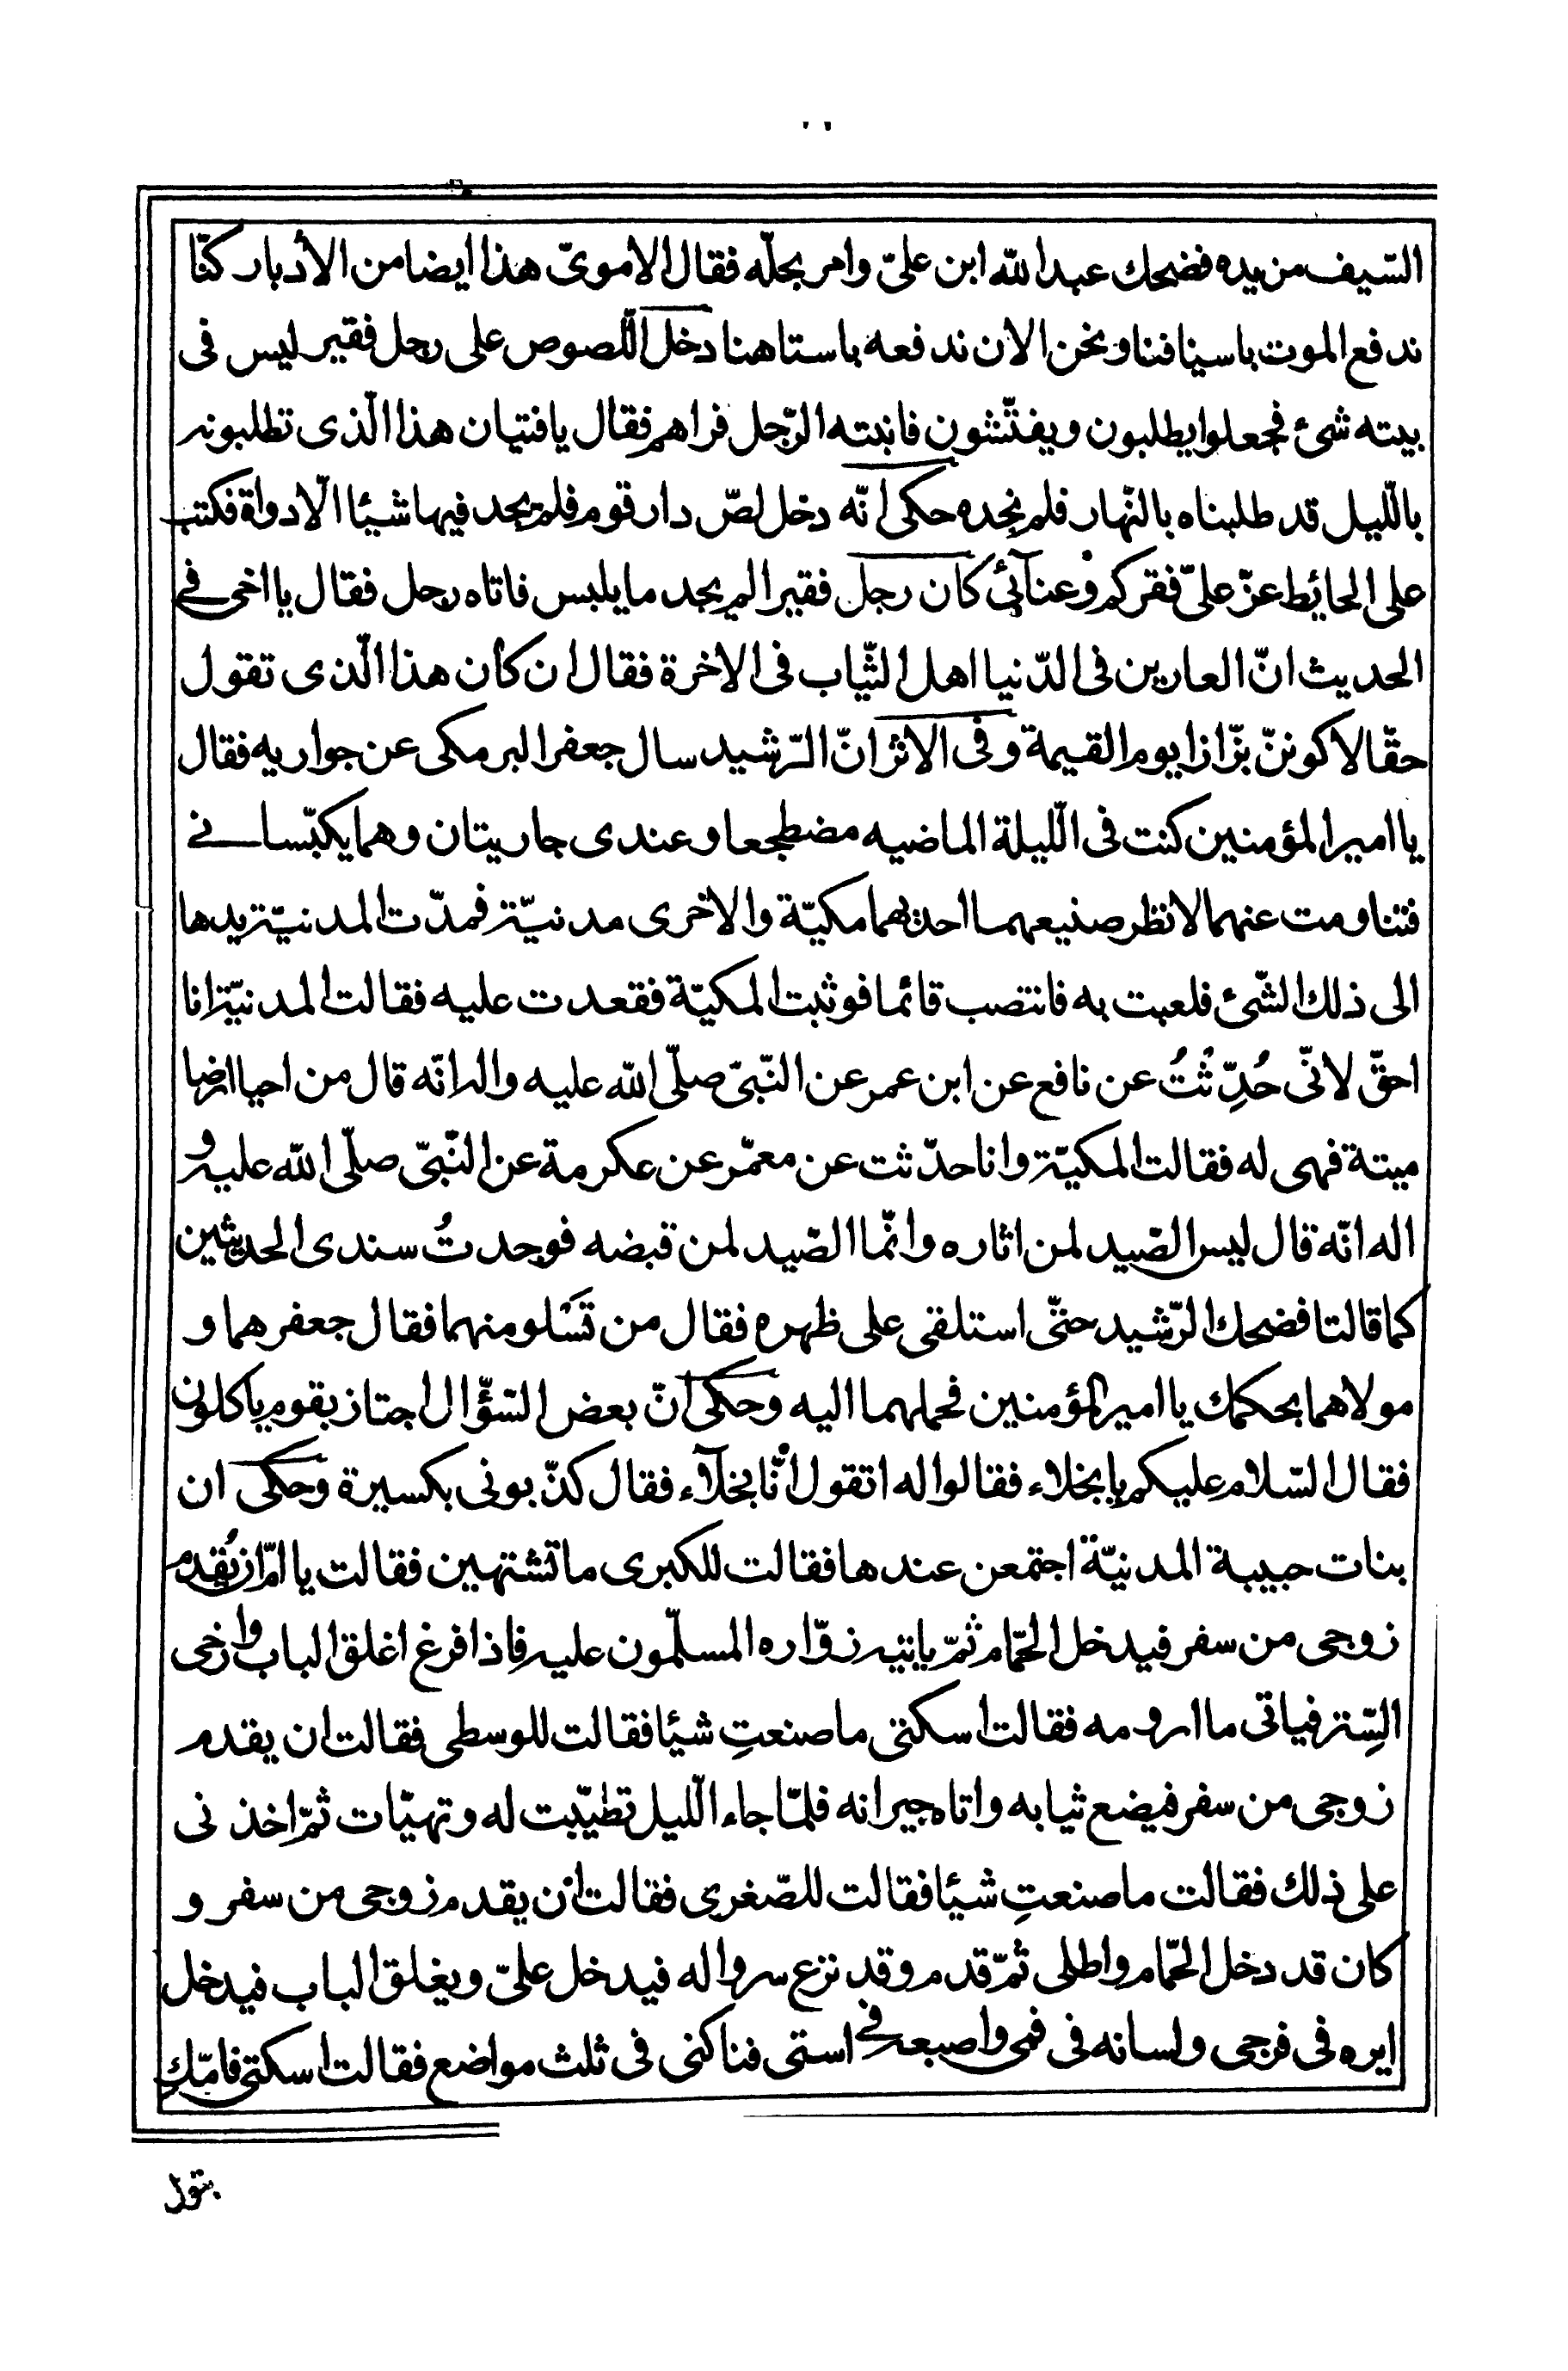 السّيف من يده فضحك عبد اللّه ابن علىّ وامر بجلّه فقال الاموىّ هذا ايضا من الأدبار كنّا
ندفع الموت باسيافنا ونحن الان ندفعه باستاهنا دخل اللّصوص على رجل فقير ليس فى
بيته شئ فجعلوا يطلبون ويفتّشون فانبته الرّجل فراهم فقال يا فتيان هذا الّذى تطلبونه
باللّيل قد طلبناه بالنّهار فلم نجده حكى انّه دخل لصّ دار قوم فلم يجد فيها شيئا الّا دواة فكتب
على الحائط عزّ علىّ فقركم وعنآئى كان رجل فقيرا لم يجد ما يلبس فاتاه رجل فقال يا اخى فے
الحديث انّ العارين فى الدّنيا اهل الثّياب فى الاخرة فقال ان كان هذا الّذى تقول
حقّا لاكوننّ بزّازا يوم القيمة وفى الاثر انّ الرّشيد سال جعفر البرمكى عن جواريه فقال
يا امير المؤمنين كنت فى اللّيلة الماضيه مضطجعا وعندى جاريتان وهما يكبّسانے
فتناومت عنهما لانظر صنيعهما احديهما مكيّة والاخرى مدنيّة فمدّت المدنيّة يدها
الى ذلك الشّئ فلعبت به فانتصب قائما فوثبت المكيّة فقعدت عليه فقالت المدنيّة انا
احقّ لانّى حُدِّثتُ عن نافع عن ابن عمر عن النّبىّ صلّى اللّه عليه واله انّه قال من احيا ارضا
ميتة فهى له فقالت المكيّة وانا حدّثت عن معمّر عن عكرمة عن النّبىّ صلّى اللّه عليه و
اله انّه قال ليس الصّيد لمن اثاره وانّما الصّيد لمن قبضه فوجدتُ سندى الحديثين
كما قالتا فضحك الرّشيد حتّى استلقى على ظهره فقال من تَسْلو منهما فقال جعفر هما و
مولاهما بحكمك يا امير المؤمنين فحملهما اليه وحكى انّ بعض السّؤّال اجتاز بقوم ياكلون
فقال السّلام عليكم يا بخلاء فقالوا له اتقول انّا بخلآء فقال كذّبونى بكسيرة وحكى ان
بنات حبيبة المدنيّة اجتمعن عندها فقالت للكبرى ما تشتهين فقالت يا امّ ان يُقدم
زوجى من سفر فيدخل الحمّام ثمّ ياتيه زوّاره المسلّمون عليه فاذا فرغ اغلق الباب وارخى
السِّتر فياتى ما ارومه فقالت اسكتى ما صنعتِ شيئا فقالت للوسطى فقالت ان يقدم
زوجى من سفر فيضع ثيابه واتاه جيرانه فلمّا جاء اللّيل تطيّبت له وتهيّات ثمّ اخذنى
على ذلك فقالت ما صنعتِ شيئا فقالت للصّغرى فقالت ان يقدم زوجى من سفر و
كان قد دخل الحمّام واطلى ثمّ قدم وقد نزع سرواله فيدخل علىّ ويغلق الباب فيدخل
ايره فى فرجى ولسانه فى فمى واصبعه فے استى فناكنى فى ثلث مواضع فقالت اسكتى فامّكِ